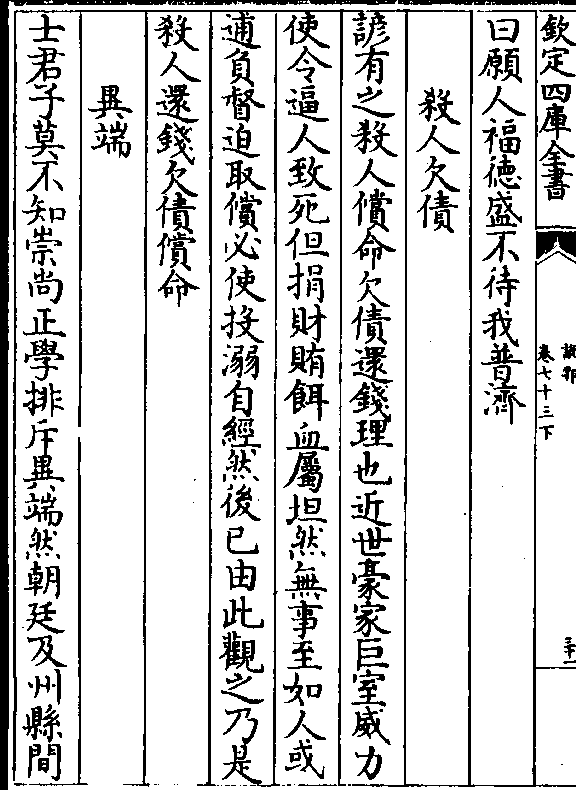 欽定四庫全書
說郛
卷七十三下
三十一
曰願人福德盛不待我普濟
殺人欠債
諺有之殺人償命欠債還錢理也近世豪家巨室威力
使令逼人致死但捐財賄餌血屬坦然無事至如人或
逋負督迫取償必使投溺自經然後已由此觀之乃是
殺人還錢欠債償命
異端
士君子莫不知崇尚正學排斥異端然朝廷及州縣間